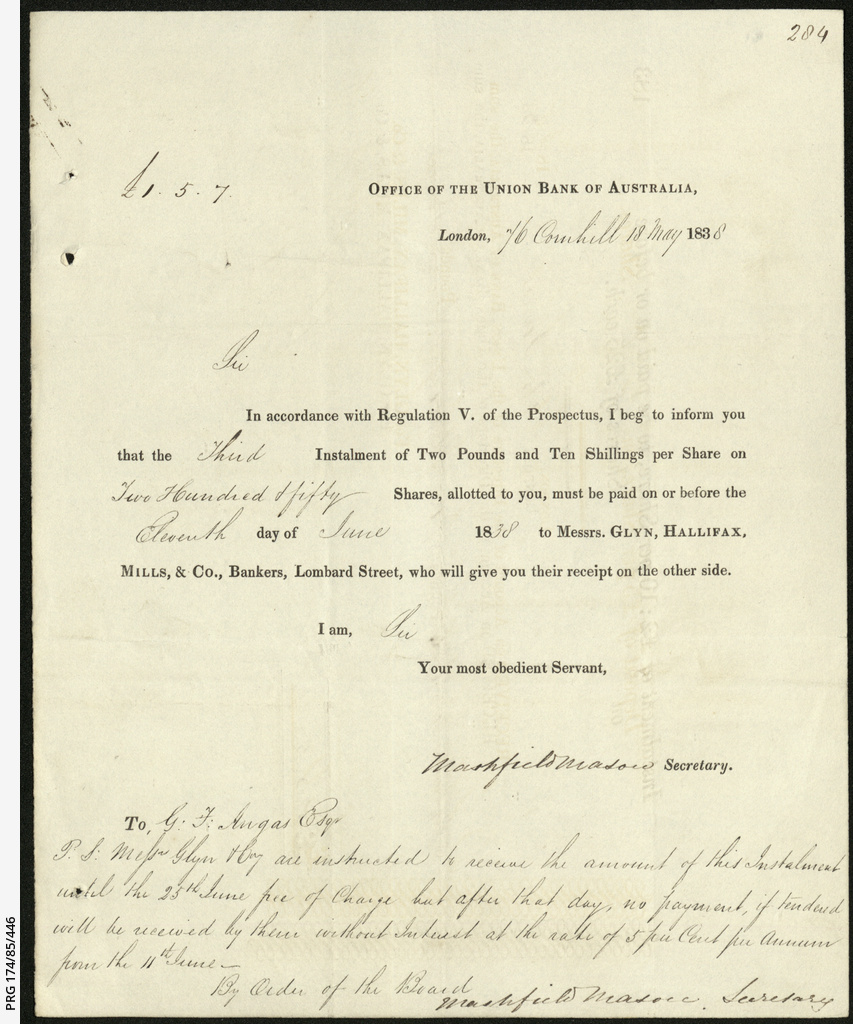 284
£1 . 5 . 7.
OFFICE OF THE UNION BANK OF AUSTRALIA,
London, 7/6 Cornhill 18 May 1838
Sir
In accordance with Regulation V. of the Prospectus, I beg to inform you
that the Third Instalment of Two Pounds and Ten Shillings per Share on
Two Hundred & fifty Shares, allotted to you, must be paid on or before the
Eleventh day of June 1838 to Messrs. GLYN, HALLIFAX,
MILLS, & Co., Bankers, Lombard Street, who will give you their receipt on the other side.
I am, Sir.
Your most obedient Servant,
Mashfield Mason Secretary.
To, G. F. Angas Esqr
P. S. Messrs Glyn & Coy are instructed to receive the amount of this Instalment
until the 25th June free of Charge but after that day, no payment, if tendered
will be received by them without Interest at the rate of 5 per Cent per Annum
from the 11th June—
By Order of the Board
Mashfield Mason. Secretary
PRG 174/85/446